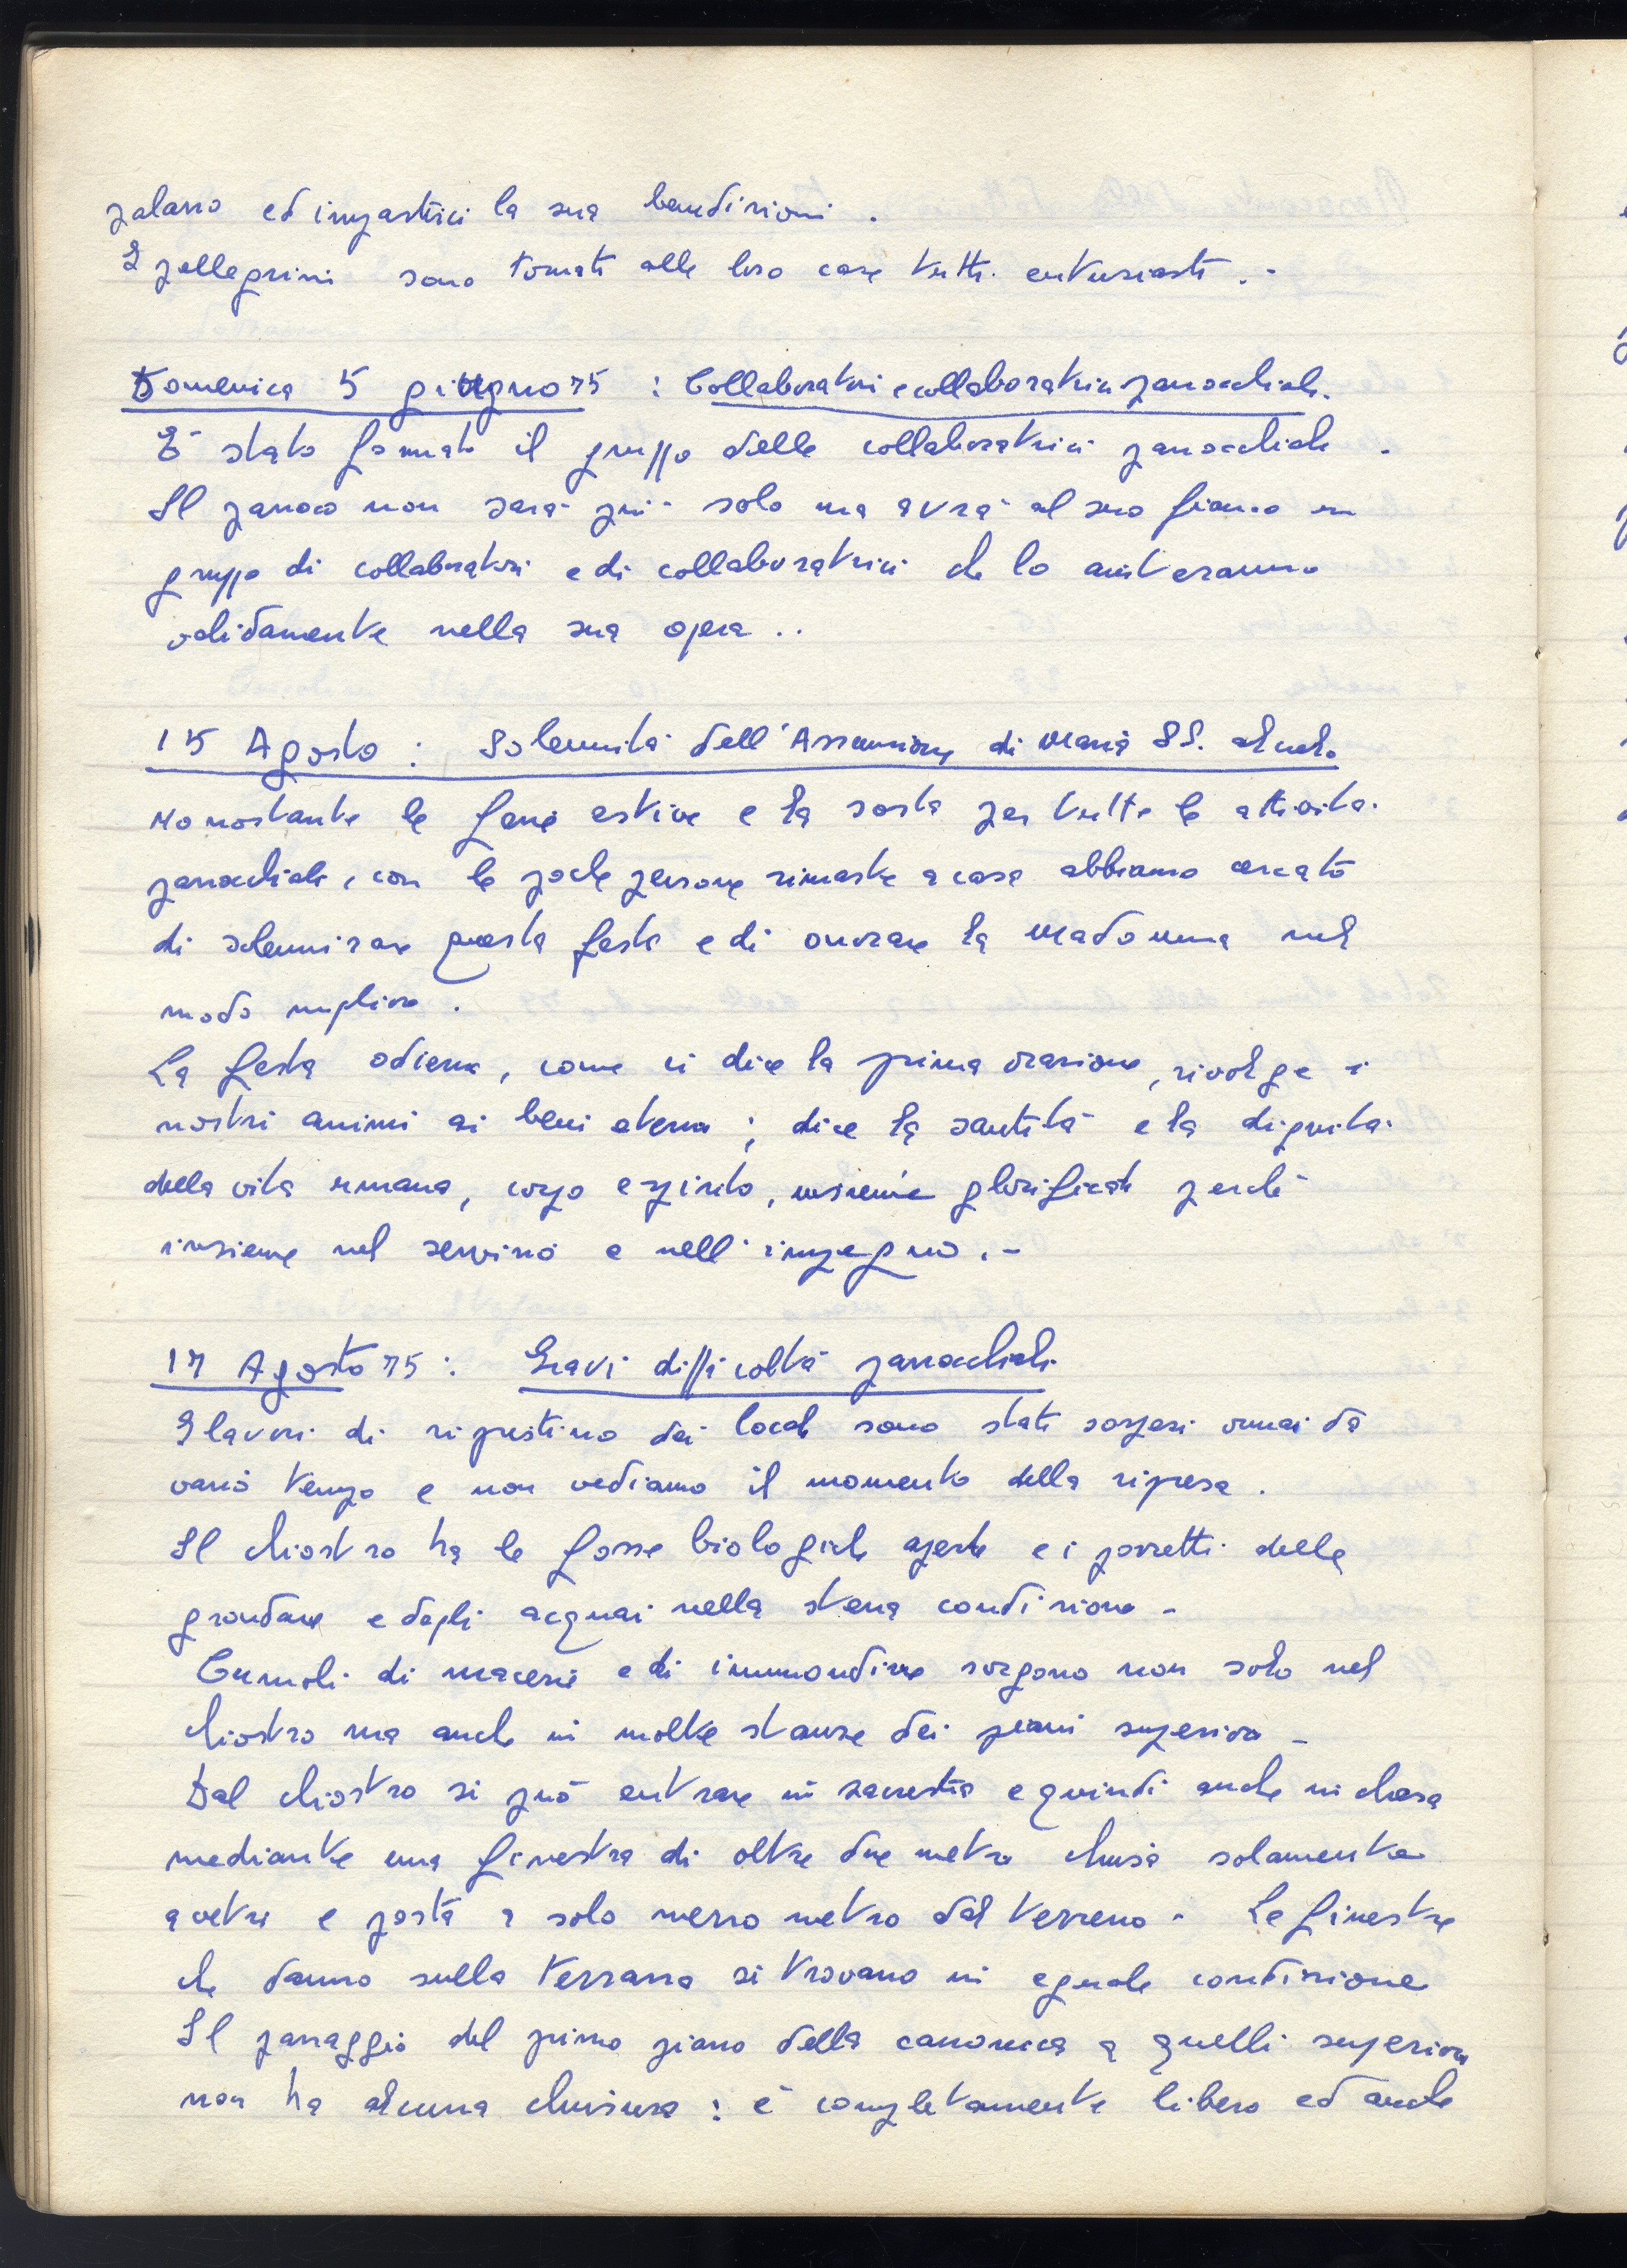 palazzo ed impartirci la sua benedizioni .
I pellegrini sono tornati alle loro case tutti entusiasti . -
Domenica 5 giugno 75 : Collaboratori e collaboratrici parrocchiali.
È stato formato il gruppo delle collaboratrici parrocchiali .
Il parroco non sarà più solo ma avrà al suo fianco un
gruppo di collaboratori e di collaboratrici che lo aiuteranno
validamente nella sua opera ..
15 Agosto : Solennità dell'Assunzione di Maria SS. al cielo
Nonostante le ferie estive e la sosta per tutte le attività
parrocchiali, con le poche persone rimaste a casa abbiamo cercato
di solennizzare questa festa e di onorare la Madonna nel
modo migliore .
La festa odierna, come ci dice la prima orazione, rivolge i
nostri animi ai beni eterni ; dice la santità e la dignità
della vita umana, corpo e spirito, insieme glorificati perché
insieme nel servizio e nell'impegno . -
17 Agosto 75 : Gravi difficoltà parrocchiali
I lavori di ripristino dei locali sono stati sospesi ormai da
vario tempo e non vediamo il momento della ripresa .
Il chiostro ha le fosse biologiche aperte e i pozzetti delle
grondaie e degli acquai nella stessa condizione -
Cumoli di macerie e di immondizie sorgono non solo nel
chiostro ma anche in molte stanze dei piani superiori -
Dal chiostro si può entrare in sacrestia e quindi anche in chiesa
mediante una finestra di oltre due metri chiusa solamente
a vetri e posta a solo mezzo metro dal terreno - Le finestre
che danno sulla terrazza si trovano in eguale condizione
Il passaggio del primo piano della canonica a quelli superiori
non ha alcuna chiusura : è completamente libero ed anche